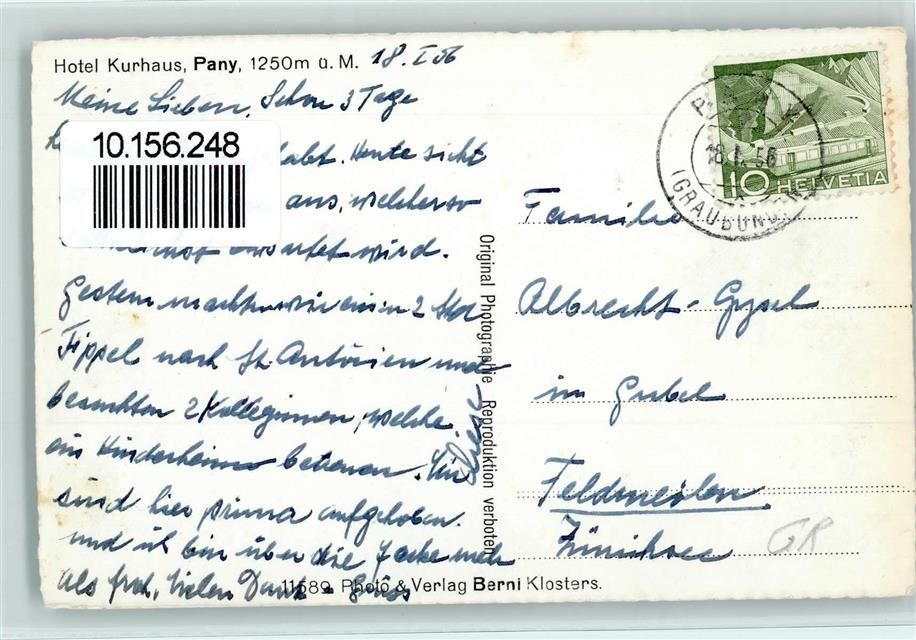 Hotel Kurhaus, Pany, 1250m ü. M. 18. I 56
Meine Lieben, Schon 3 Tage
10.156.248
habt. Heute sieht
aus, welcher so
erwartet wird.
Gestern machten wir einen 2 Std
Tippel nach St. Antönien und
besuchten 2 Kolleginnen, welche
ein Kinderheim betreuen. Wir
sind hier prima aufgehoben.
und ich bin über die Jacke mehr
als froh, Vielen Dank & Grüss
Original Photographie Reproduktion verboten
11589 Photo & Verlag Berni Klosters.
18. I. 56
(GRAUBÜND
10 HELVETIA
Familie
Albrecht-Gysel
im Gubel
Feldmeilen
Zürichsee
GR